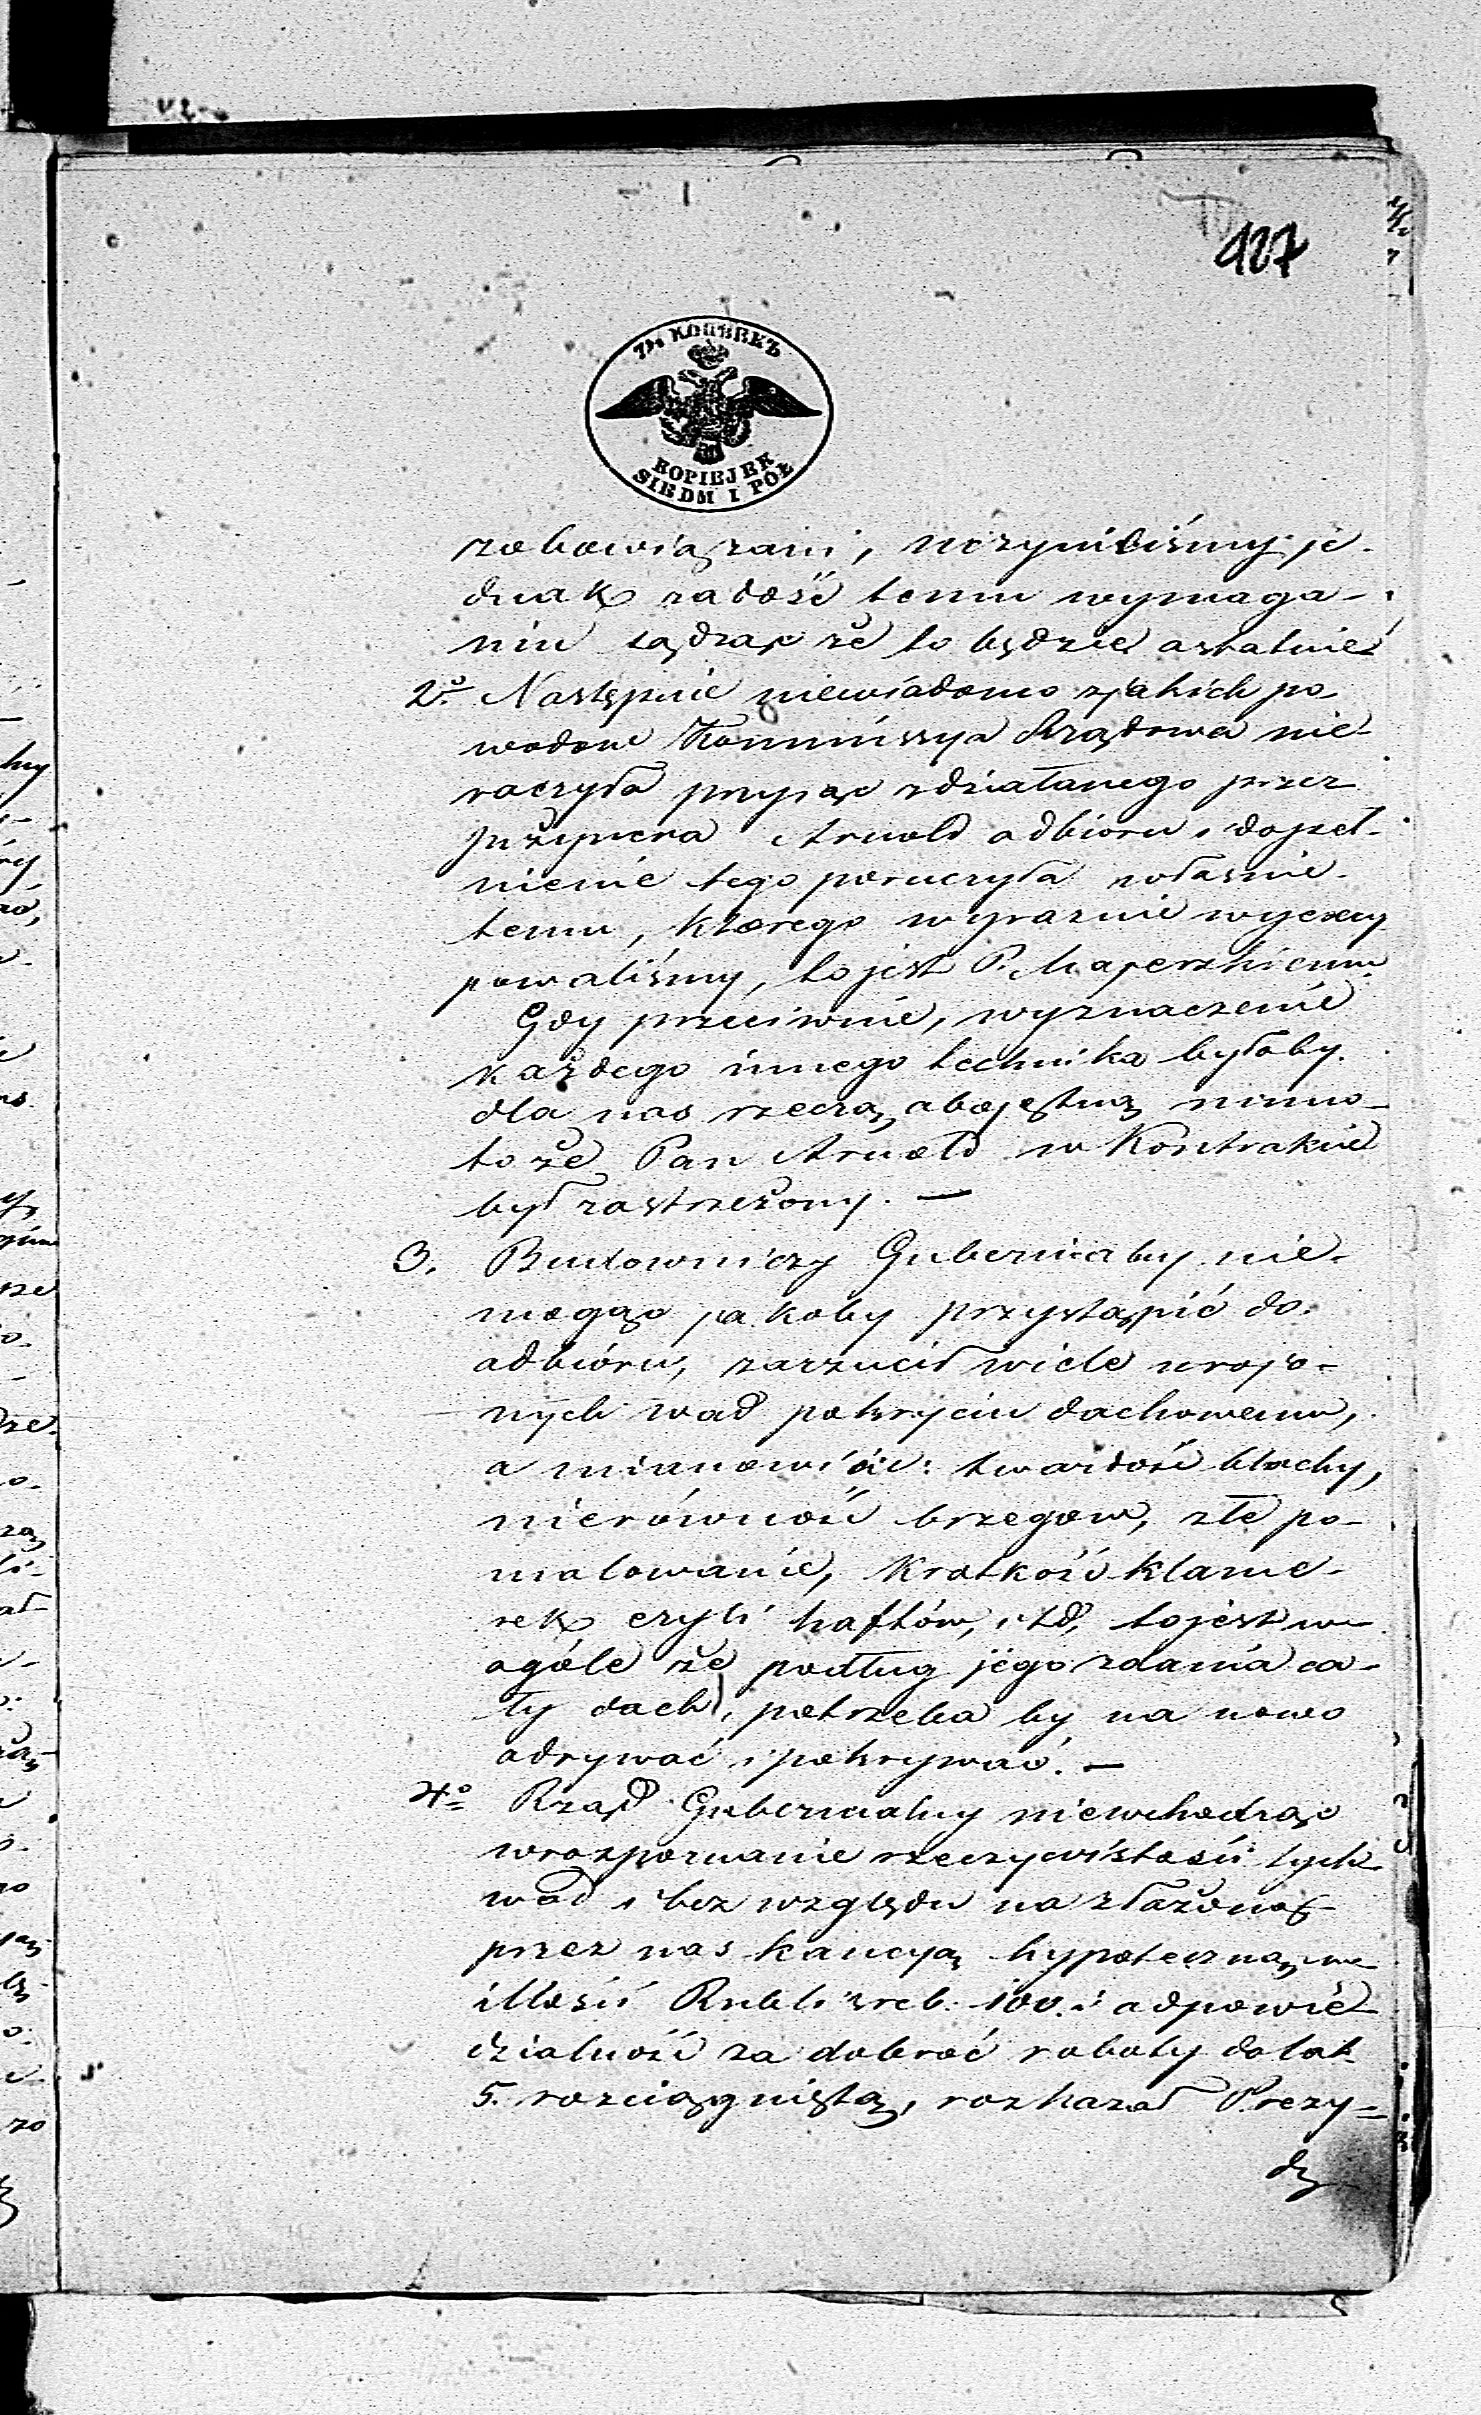 127
7½ КОПѢЕКЪ
KOPIEJEK
SIEDM I PÓŁ
zobowiązani, uczyniliśmy je-
dnak zadość temu wymaga-
niu sądząc że to będzie ostatnie
2o. Następnie niewiadomo z jakich po-
wodów Kommissya Rządowa nie-
raczyła przyjąć zdziałanego przez
Inżyniera Arnold odbioru i dopeł-
nienie tego poruczyła właśnie
temu, którego wyraźnie wyexcy-
powaliśmy, to jest P. Majerskiemu.
Gdy przeciwnie, wyznaczenie
każdego innego technika byłoby
dla nas rzeczą obojętną mimo
to że Pan Arnold w Kontrakcie
był zastrzeżony. —
3. Budowniczy Gubernialny nie-
mogąc jakoby przystąpić do
odbioru, zarzucił wiele urojo-
nych wad pokryciu dachowemu,
a mianowicie: twardość blachy,
nierówność brzegów, złe po-
malowanie, krótkość klame-
rek czyli haftów, itd, to jest w
ogóle że podług jego zdania ca-
ły dach, potrzeba by na nowo
odrywać i pokrywać. —
4o Rząd Gubernialny niewchodząc
w rozpoznanie rzeczywistości tych
wad i bez względu na złożoną
przez nas kaucyą hypoteczną w
illości Rubli sreb. 100. i odpowie-
dzialność za dobroć roboty do lat
5. rozciągniętą, rozkazał Prezy-
dy